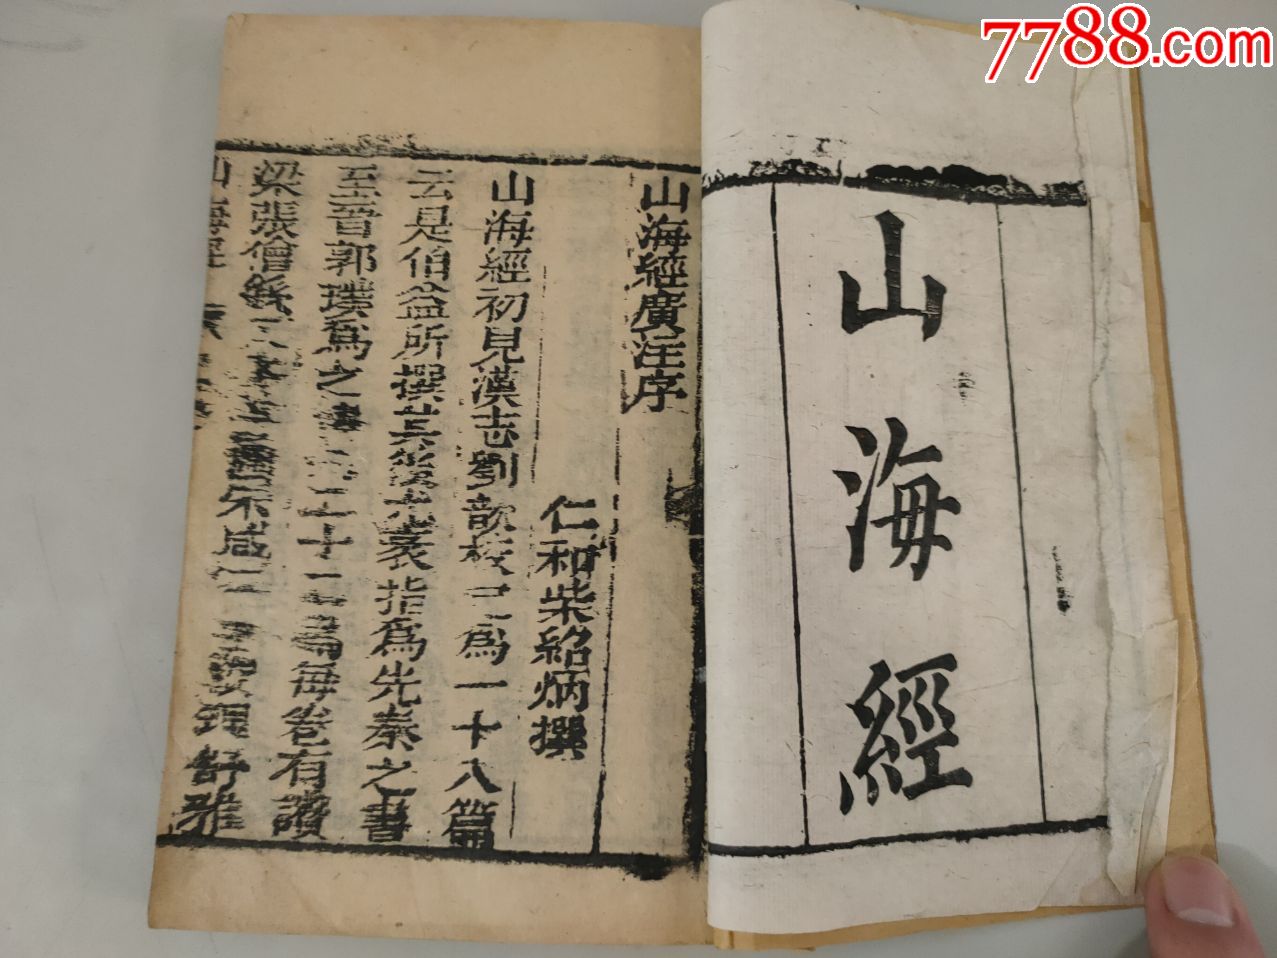 7788.com
山海經
山海經廣注序
仁和柴紹炳撰
山海經初見漢志劉歆校已為一十八篇
云是伯益所撰其後尤袤指為先秦之書
至晉郭璞爲之二十二為每卷有讚
梁張僧繇朱咸舒雅
山海經